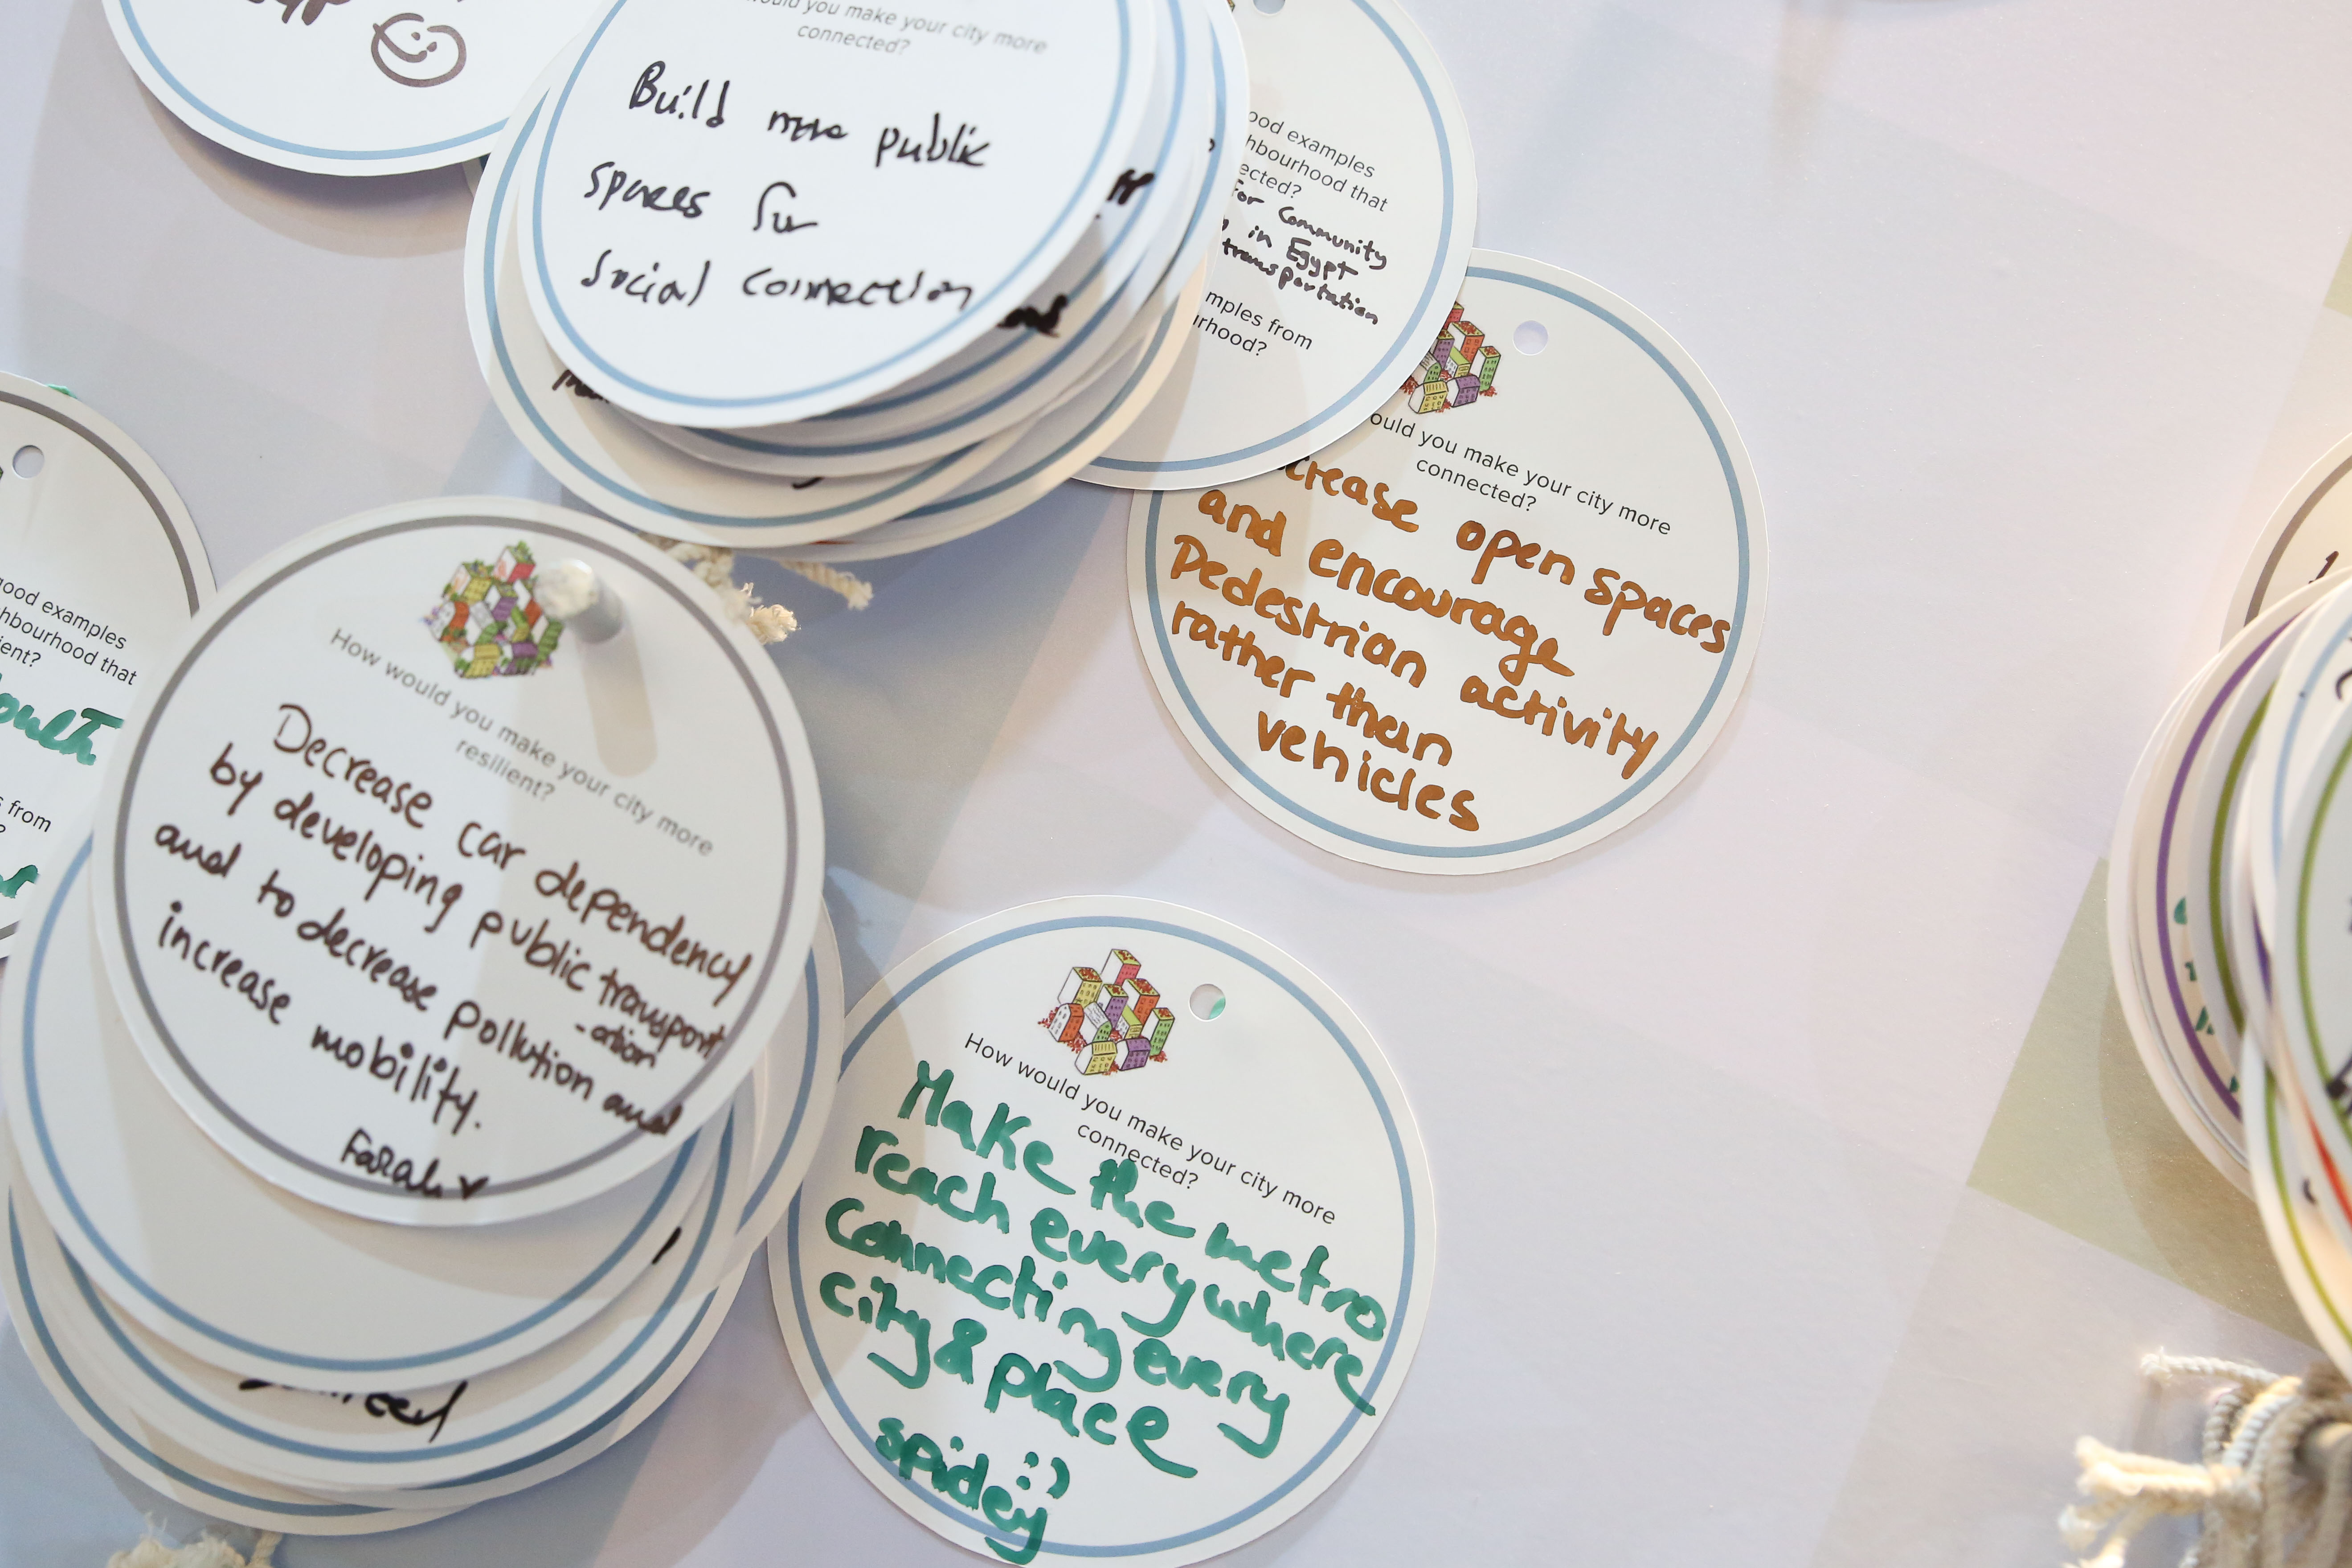 would you make your city more
connected?
Build more public
spaces for
social connection
ood examples
hbourhood that
ected?
for Community
in Egypt
transportation
mples from
urhood?
ould you make your city more
connected?
crease open spaces
and encourage
Pedestrian activity
rather than
vehicles
good examples
hbourhood that
ient?
from
How would you make your city more
resilient?
Decrease car dependency
by developing public transport
-ation
and to decrease pollution and
increase mobility.
Farah
How would you make your city more
connected?
Make the metro
reach everywhere
connecting every
city & place
:)
spidey